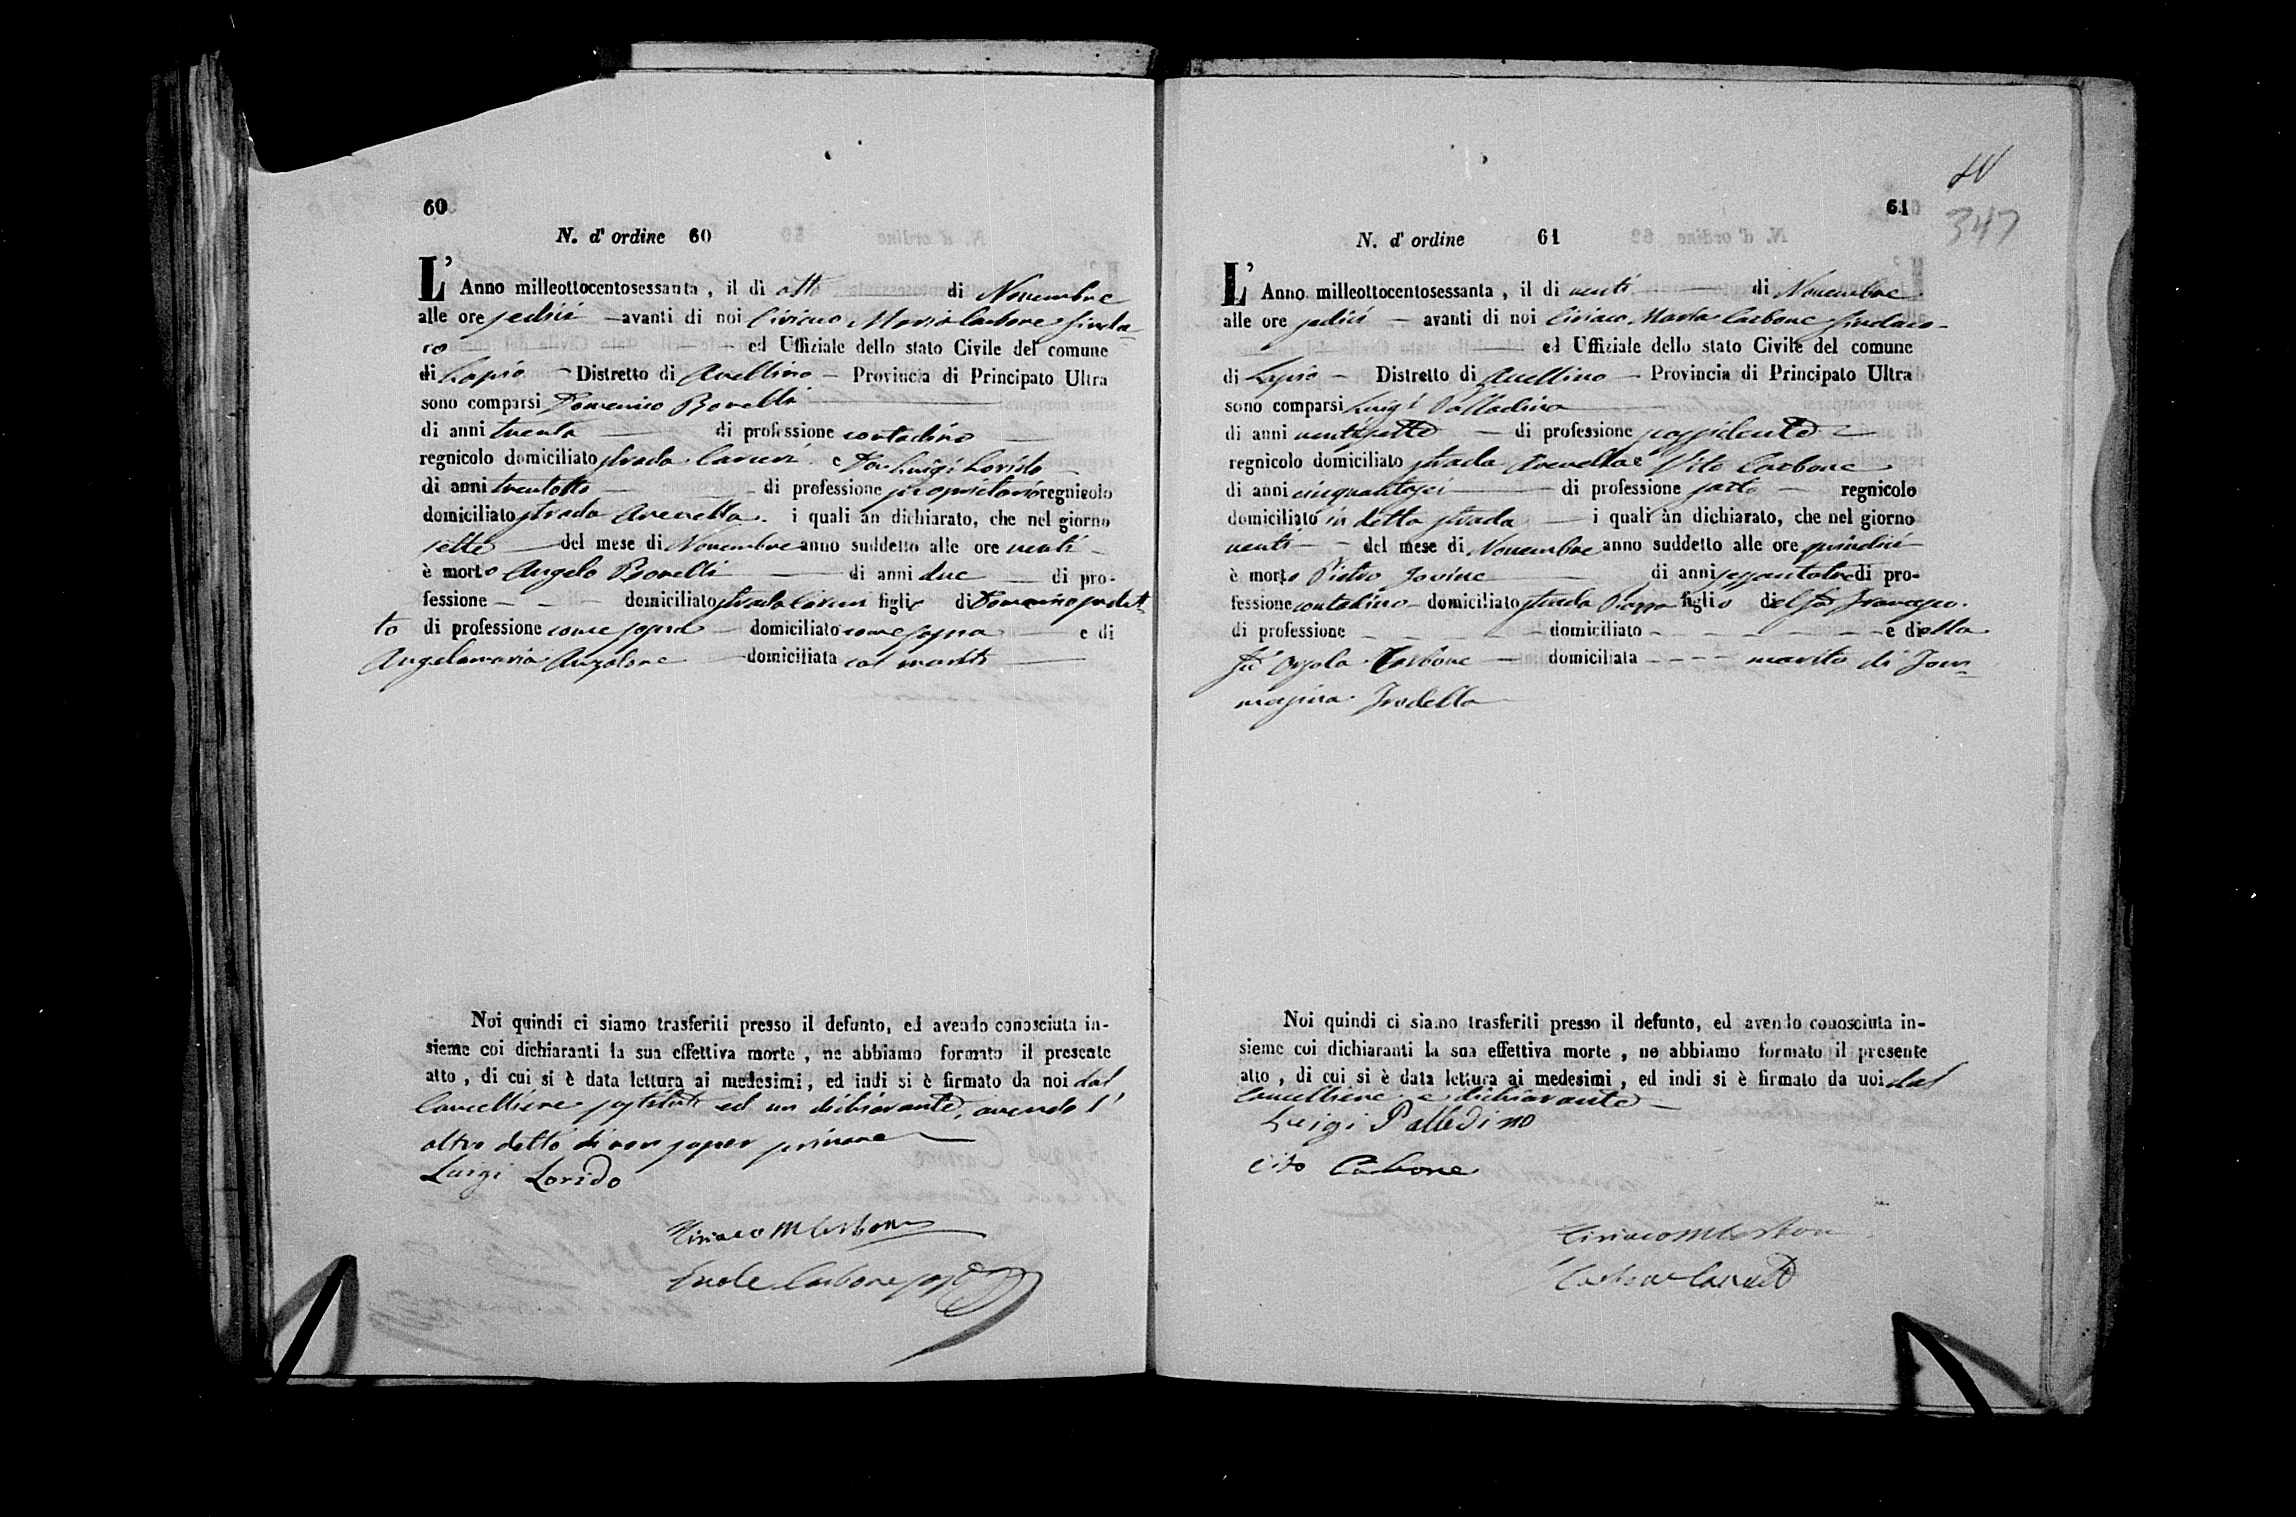 60
N. d' ordine 60
L' Anno milleottocentosessanta, il di otto di Novembre
alle ore sedici avanti di noi Ciriaco Maria Carbone Sinda-
co ed Uffiziale dello stato Civile del comune
di Lapio Distretto di Avellino Provincia di Principato Ultra
sono comparsi Domenico Borelli
di anni trenta di professione contadino
regnicolo domiciliato strada e Don Luigi Lorido
di anni trentotto di professione proprietario regnicolo
domiciliato strada Arenella i quali àn dichiarato, che nel giorno
sette del mese di Novembre anno suddetto alle ore venti
è morto Angelo Borelli di anni due di pro-
fessione domiciliato strada figlio di Domenico sudet-
to di professione come sopra domiciliato come sopra e di
Angelamaria Anzalone domiciliata col marito
Noi quindi ci siamo trasferiti presso il defunto, ed avendo conosciuta in-
sieme coi dichiaranti la sua effettiva morte, ne abbiamo formato il presente
atto, di cui si è data lettura ai medesimi, ed indi si è firmato da noi dal
Cancelliere sostituto ed un dichiarante, avendo l'
altro detto di non saper scrivere
Luigi Lorido
Ciriaco M Carbone
Carbone
61
347
N. d' ordine 61
L' Anno milleottocentosessanta, il di venti di Novembre
alle ore sedici avanti di noi Ciriaco Maria Carbone Sindaco
ed Uffiziale dello stato Civile del comune
di Lapio Distretto di Avellino Provincia di Principato Ultra
sono comparsi Luigi Palladino
di anni ventisette di professione possidente
regnicolo domiciliato strada Arenella e Vito Carbone
di anni cinquantasei di professione sarto regnicolo
domiciliato in detta strada i quali àn dichiarato, che nel giorno
venti del mese di Novembre anno suddetto alle ore quindici
è morto Pietro Iovine di anni sessantatre di pro-
fessione contadino domiciliato strada Piazza figlio del fu Francesco
di professione domiciliato e della
fu Orsola Carbone domiciliata marito di Tom-
masina
Noi quindi ci siamo trasferiti presso il defunto, ed avendo conosciuta in-
sieme coi dichiaranti la sua effettiva morte, ne abbiamo formato il presente
atto, di cui si è data lettura ai medesimi, ed indi si è firmato da noi dal
Cancelliere e dichiarante
Luigi Palledino
Vito Carbone
Ciriaco M Carbone